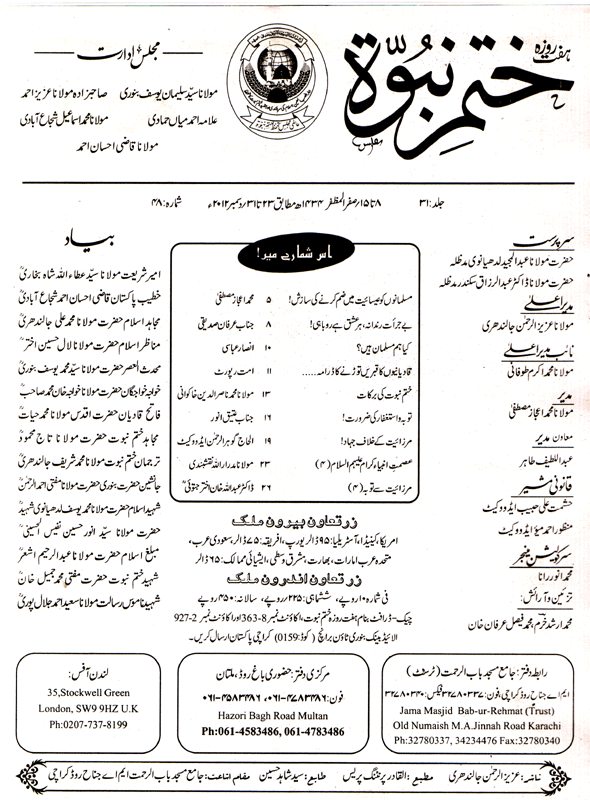 ہفت روزہ
ختم نبوّۃ
مجلس ادارت
مولانا سیّد سلیمان یوسف بنوری صاحبزادہ مولانا عزیز احمد
علامہ احمد میاں حمادی مولانا محمد اسماعیل شجاع آبادی
مولانا قاضی احسان احمد
جلد: ۳۱ ۸ تا ۱۵؍صفر المظفر ۱۴۳۴ھ مطابق ۲۳ تا ۳۱؍دسمبر ۲۰۱۲ء شمارہ: ۴۸
سرپرست
حضرت مولانا عبدالمجید لدھیانوی مدظلہ
حضرت مولانا ڈاکٹر عبدالرزاق سکندر مدظلہ
مدیر اعلیٰ
مولانا عزیز الرحمٰن جالندھری
نائب مدیر اعلیٰ
مولانا محمد اکرم طوفانی
مدیر
مولانا محمد اعجاز مصطفیٰ
معاون مدیر
عبداللطیف طاہر
قانونی مشیر
حشمت علی حبیب ایڈووکیٹ
منظور احمد میؤ ایڈووکیٹ
سرکولیشن منیجر
محمد انور رانا
تزئین و آرائش:
محمد ارشد خرم، محمد فیصل عرفان خان
اس شمارے میں!
مسلمانوں کو عیسائیت میں ضم کرنے کی سازش! ۵ محمد اعجاز مصطفیٰ
بے جرأت رندانہ، ہر عشق ہے روباہی! ۸ جناب عرفان صدیقی
کیا ہم مسلمان ہیں؟ ۱۰ انصار عباسی
قادیانیوں کا قبریں توڑنے کا ڈرامہ...... ۱۱ امت رپورٹ
ختم نبوت کی برکات ۱۳ مولانا ناصر الدین خاکوانی
توبہ و استغفار کی ضرورت! ۱۶ جناب عتیق انور
مرزائیت کے خلاف جہاد! ۱۹ الحاج گوہر الرحمٰن ایڈووکیٹ
عصمتِ انبیاء کرام علیہم السلام (۴) ۲۳ مولانا مدرار اللہ نقشبندی
مرزائیت سے توبہ (۴) ۲۶ ڈاکٹر عبداللہ خان اختر جتوئیؒ
زرتعاون بیرون ملک
امریکا، کینیڈا، آسٹریلیا: ۹۵ ڈالر یورپ، افریقہ: ۷۵ ڈالر، سعودی عرب،
متحدہ عرب امارات، بھارت، مشرق وسطیٰ، ایشیائی ممالک: ۶۵ ڈالر
زرتعاون اندرون ملک
فی شمارہ ۱۰ روپے، ششماہی: ۲۲۵ روپے، سالانہ: ۴۵۰ روپے
چیک-ڈرافٹ بنام ہفت روزہ ختم نبوت، اکاؤنٹ نمبر 8-363 اور اکاؤنٹ نمبر 2-927
الائیڈ بینک بنوری ٹاؤن برانچ (کوڈ: 0159) کراچی پاکستان ارسال کریں۔
بیاد
امیر شریعت مولانا سیّد عطاء اللہ شاہ بخاریؒ
خطیب پاکستان قاضی احسان احمد شجاع آبادیؒ
مجاہد اسلام حضرت مولانا محمد علی جالندھریؒ
مناظر اسلام حضرت مولانا لال حسین اخترؒ
محدث العصر حضرت مولانا سیّد محمد یوسف بنوریؒ
خواجہ خواجگان حضرت مولانا خواجہ خان محمد صاحبؒ
فاتح قادیان حضرت اقدس مولانا محمد حیاتؒ
مجاہد ختم نبوت حضرت مولانا تاج محمودؒ
ترجمان ختم نبوت حضرت مولانا محمد شریف جالندھریؒ
جانشین حضرت بنوری حضرت مولانا مفتی احمد الرحمٰنؒ
شہید اسلام حضرت مولانا محمد یوسف لدھیانوی شہیدؒ
حضرت مولانا سیّد انور حسین نفیس الحسینیؒ
مبلغ اسلام حضرت مولانا عبدالرحیم اشعرؒ
شہید ختم نبوت حضرت مفتی محمد جمیل خانؒ
شہید ناموس رسالت مولانا سعید احمد جلال پوریؒ
لندن آفس:
35,Stockwell Green
London, SW9 9HZ U.K
Ph:0207-737-8199
مرکزی دفتر: حضوری باغ روڈ، ملتان
فون: ۰۶۱-۴۷۸۳۴۸۶، ۰۶۱-۴۵۸۳۴۸۶
Hazori Bagh Road Multan
Ph:061-4583486, 061-4783486
رابطہ دفتر: جامع مسجد باب الرحمت (ٹرسٹ)
ایم اے جناح روڈ کراچی، فون: ۳۲۷۸۰۳۳۷ فیکس: ۳۲۷۸۰۳۴۰
Jama Masjid Bab-ur-Rehmat (Trust)
Old Numaish M.A.Jinnah Road Karachi
Ph:32780337, 34234476 Fax:32780340
ناشر: عزیز الرحمٰن جالندھری مطبع: القادر پرنٹنگ پریس طابع: سیّد شاہد حسین مقام اشاعت: جامع مسجد باب الرحمت ایم اے جناح روڈ کراچی